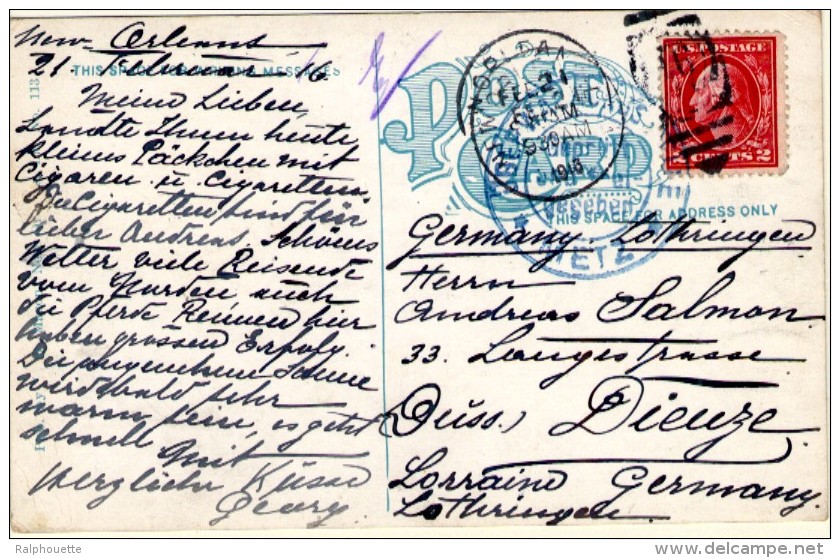 New Orleans
21 16
THIS SPACE FOR MESSAGES
Meine Lieben,
Sandte Ihnen heute
kleines Päckchen mit
Cigaren u. Cigaretten.
Cigaretten sind für
lieber Andreas. Schönes
Wetter viele Reisende
vom Norden auch
die Pferde Rennen hier
haben grossen Erfolg.
Die angenehme
wird bald sehr
warm sein, es geht
schnell
Mit
Herzlichen Küsse
Georg
113
POST CARD
FEB 21
930AM
1916
U.S. POSTAGE
2 CENTS 2
METZ
THIS SPACE FOR ADDRESS ONLY
Germany. Lothringen
Herrn
Andreas Salmon
33. Langestrasse
(Duss.) Dieuze
Lorraine Germany.
Lothringen
Ralphouette
delcampe.net